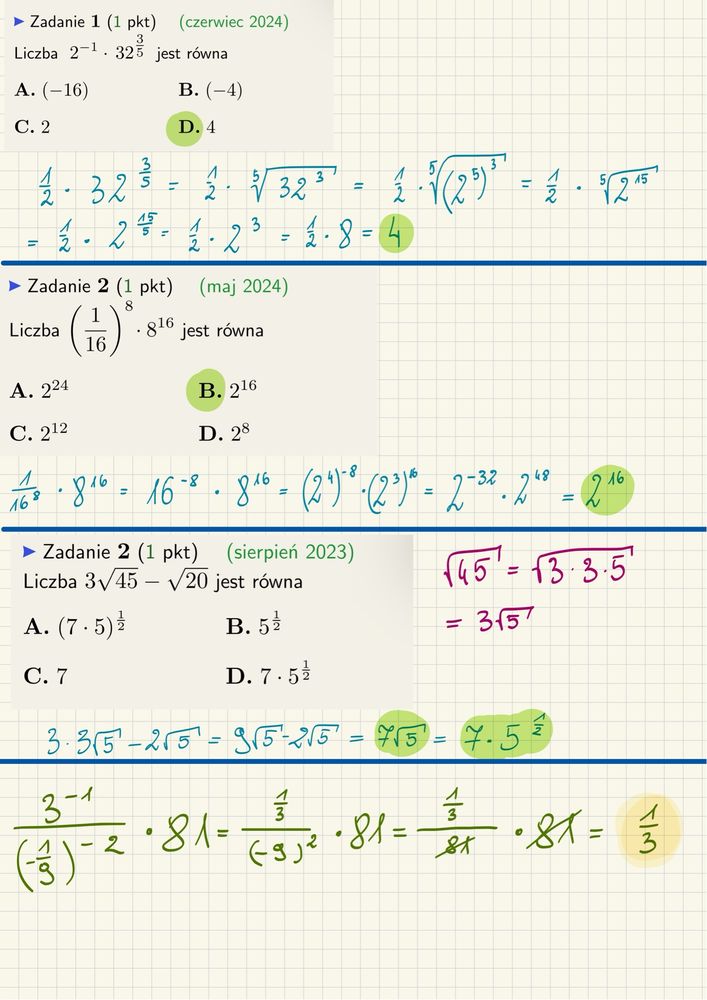 ▶ Zadanie 1 (1 pkt) (czerwiec 2024)
Liczba 2⁻¹ · 32^(3/5) jest równa
A. (−16) B. (−4)
C. 2 D. 4
1/2 · 32^(3/5) = 1/2 · ⁵√(32³) = 1/2 · ⁵√((2⁵)³) = 1/2 · ⁵√(2¹⁵)
= 1/2 · 2^(15/5) = 1/2 · 2³ = 1/2 · 8 = 4
▶ Zadanie 2 (1 pkt) (maj 2024)
Liczba (1/16)⁸ · 8¹⁶ jest równa
A. 2²⁴ B. 2¹⁶
C. 2¹² D. 2⁸
1/16⁸ · 8¹⁶ = 16⁻⁸ · 8¹⁶ = (2⁴)⁻⁸ · (2³)¹⁶ = 2⁻³² · 2⁴⁸ = 2¹⁶
▶ Zadanie 2 (1 pkt) (sierpień 2023)
Liczba 3√45 − √20 jest równa
A. (7 · 5)^(1/2) B. 5^(1/2)
C. 7 D. 7 · 5^(1/2)
√45 = √(3·3·5)
= 3√5
3·3√5 − 2√5 = 9√5 − 2√5 = 7√5 = 7·5^(1/2)
3⁻¹/(−1/9)⁻² · 81 = (1/3)/(−9)² · 81 = (1/3)/81 · 81 = 1/3